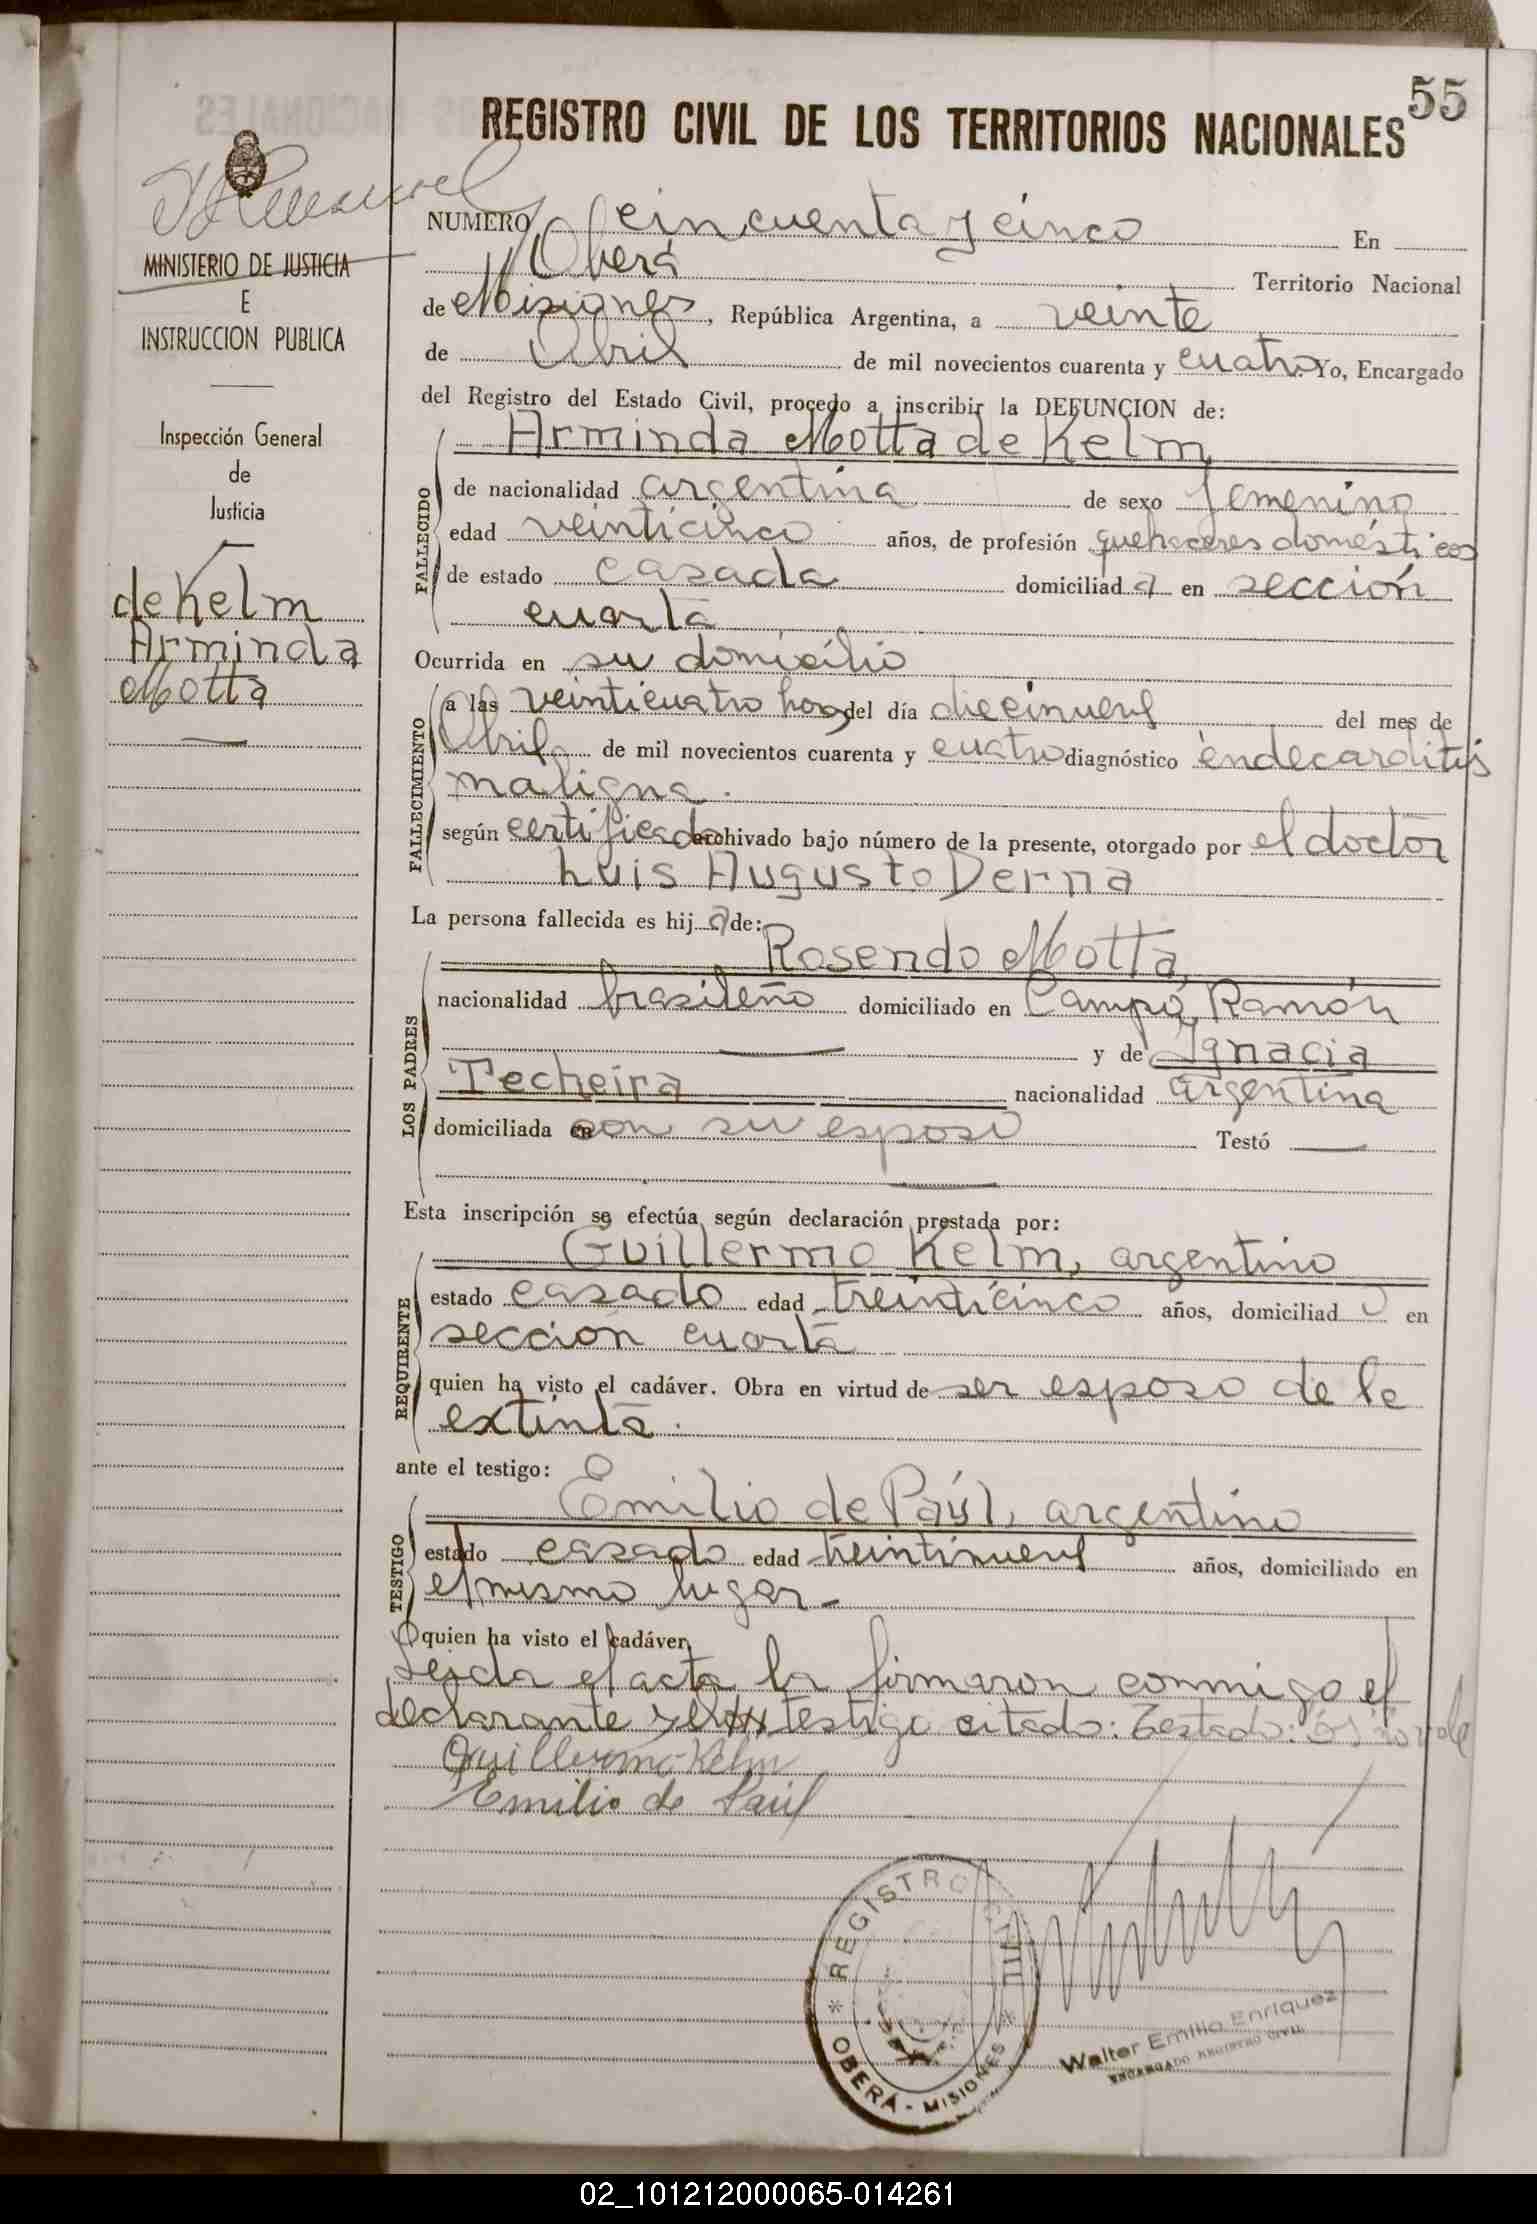 55
REGISTRO CIVIL DE LOS TERRITORIOS NACIONALES
MINISTERIO DE JUSTICIA
E
INSTRUCCION PUBLICA
Inspección General
de
Justicia
de Kelm
Arminda
Motta
NUMERO cincuenta y cinco En
Oberá Territorio Nacional
de Misiones, República Argentina, a veinte
de Abril de mil novecientos cuarenta y cuatro. Yo, Encargado
del Registro del Estado Civil, procedo a inscribir la DEFUNCION de:
Arminda Motta de Kelm
FALLECIDO
de nacionalidad argentina de sexo femenino
edad veinticinco años, de profesión quehaceres domésticos
de estado casada domiciliad a en sección
cuarta
Ocurrida en su domicilio
FALLECIMIENTO
a las veinticuatro horas del día diecinueve del mes de
Abril de mil novecientos cuarenta y cuatro diagnóstico endecarditis
maligna.
según certificado archivado bajo número de la presente, otorgado por el doctor
Luis Augusto Derna
La persona fallecida es hij a de:
Rosendo Motta,
LOS PADRES
nacionalidad brasileño domiciliado en Campo Ramón
y de Ignacia
Techeira nacionalidad argentina
domiciliada con su esposo Testó
Esta inscripción se efectúa según declaración prestada por:
Guillermo Kelm, argentino
REQUIRENTE
estado casado edad treinticinco años, domiciliad o en
sección cuarta
quien ha visto el cadáver. Obra en virtud de ser esposo de la
extinta.
ante el testigo:
Emilio de Paúl, argentino
TESTIGO
estado casado edad treintinueve años, domiciliado en
el mismo lugar-
quien ha visto el cadáver
Leida el acta la firmaron conmigo el
declarante y el testigo citado: Testado:
Guillermo Kelm
Emilio de Paúl
REGISTRO CIVIL
* OBERÁ - MISIONES *
Walter Emilio Enriquez
ENCARGADO REGISTRO CIVIL
02_101212000065-014261